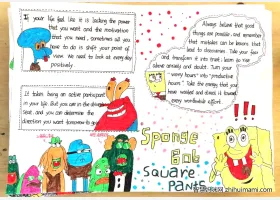 If your life feel like it is lacking the power
that you want and the motivation
that you need, sometimes all you
have to do is shift your point of
view. We need to look at every day
positively.
Always believe that good
things are possible and remember
that mistakes can be lessons that
lead to discoveries. Take your fear
and transform it into trust; learn to rise
above anxiety and doubt. Turn your
"worry hours" into "productive
hours". Take the energy that you
have wasted and direct it toward
every worthwhile effort.
It takes being an active participant
in your life. But you are in the driver's
seat, and you can determine the
direction you want tomorrow to go
!!!
Sponge
Bob
Square
Pants
zhihuimami.com